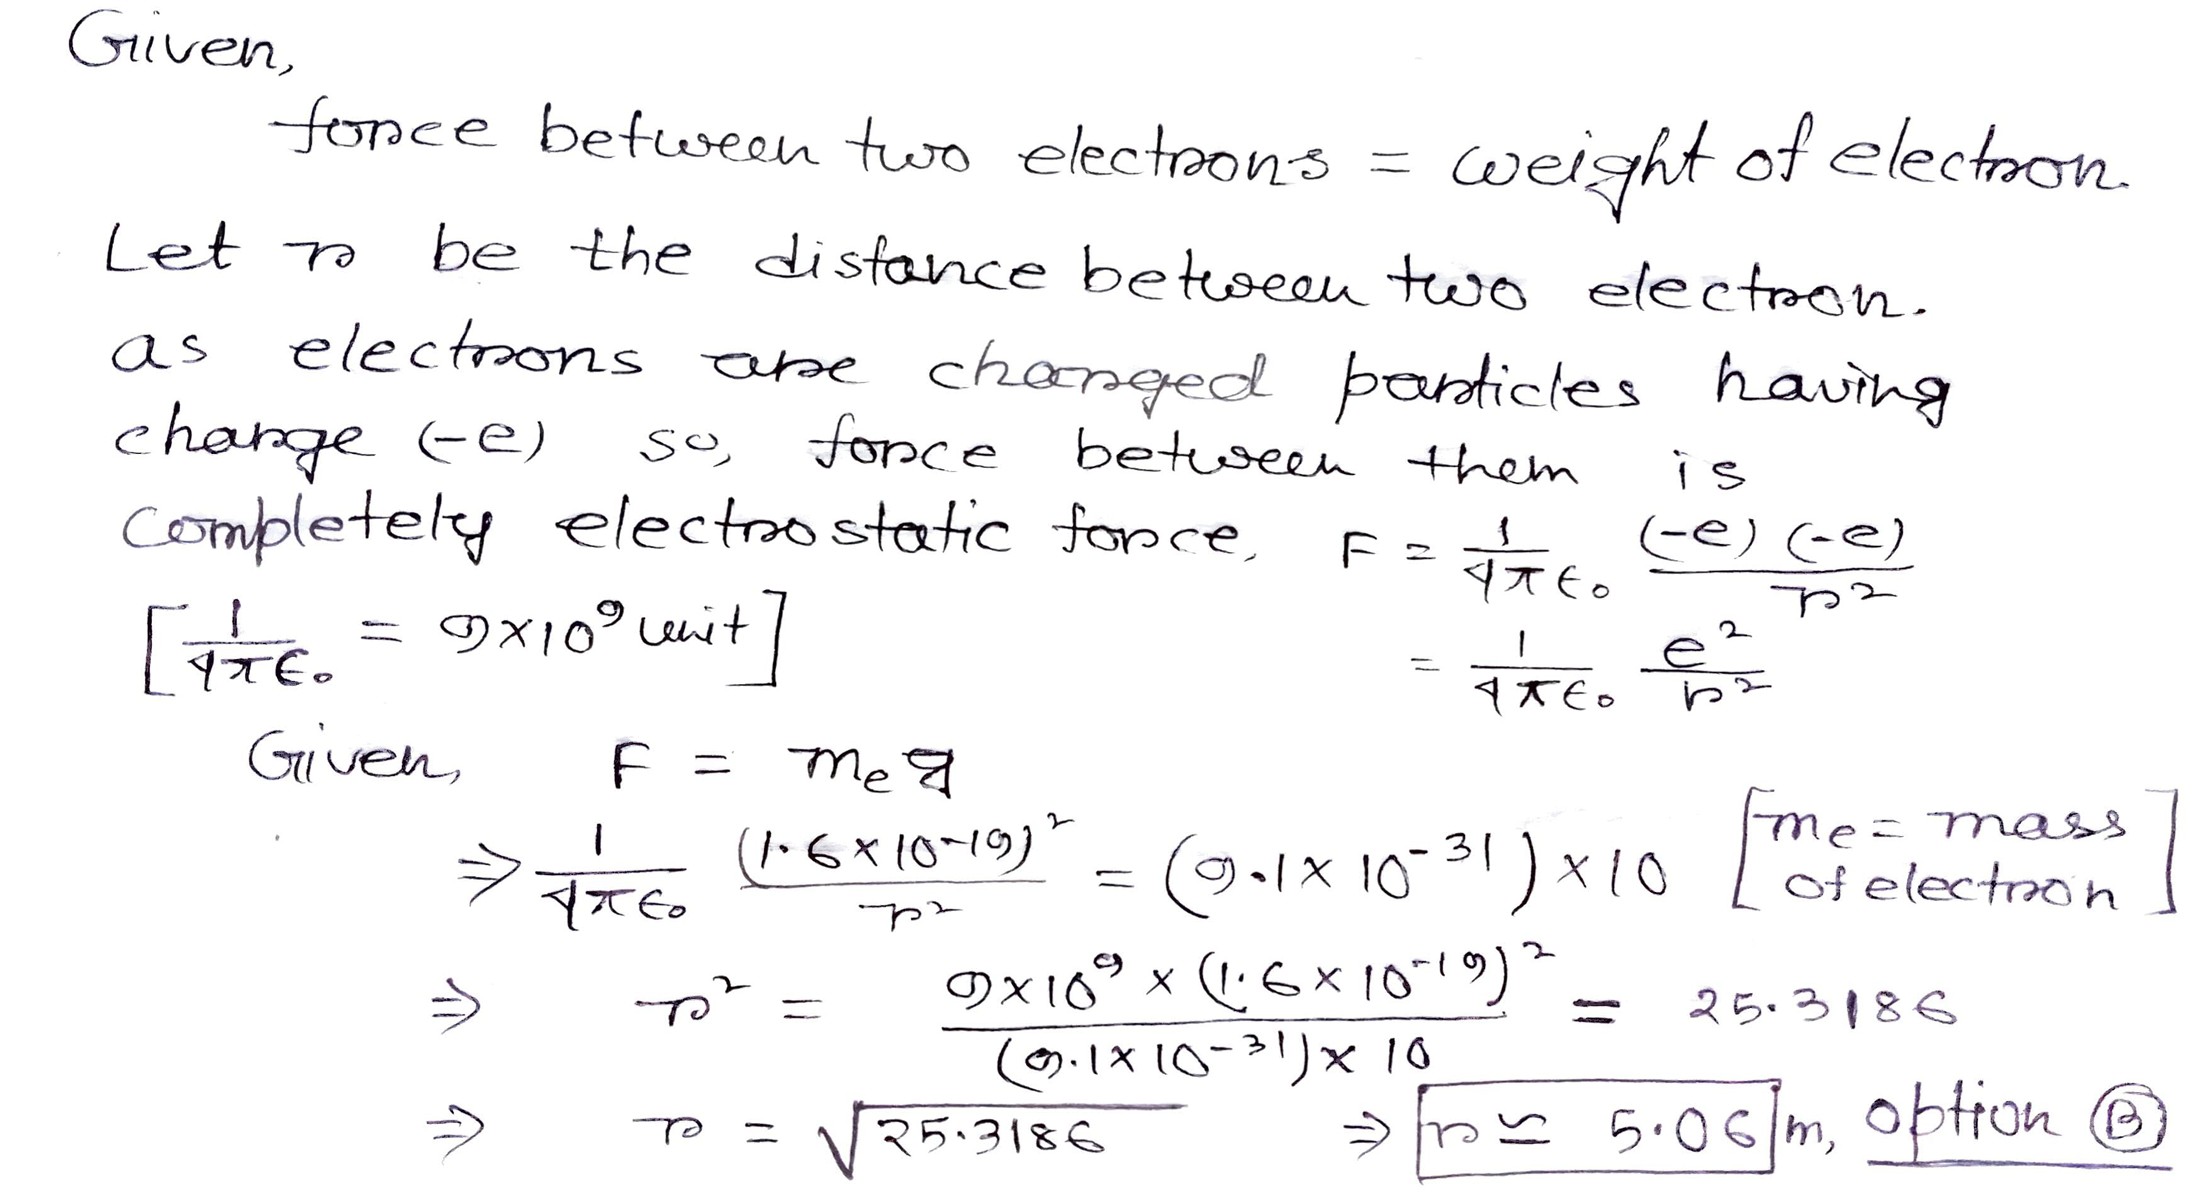 Given,
force between two electrons = weight of electron.
Let r be the distance between two electron.
as electrons are charged particles having
charge (-e) so, force between them is
completely electrostatic force, F = 1/4πϵ₀ (-e) (-e)/r²
[1/4πϵ₀ = 9×10⁹ unit] = 1/4πϵ₀ e²/r²
Given, F = mₑg
⇒ 1/4πϵ₀ (1.6×10⁻¹⁹)²/r² = (9.1×10⁻³¹)×10 [mₑ = mass of electron]
⇒ r² = 9×10⁹ × (1.6×10⁻¹⁹)²/(9.1×10⁻³¹)×10 = 25.3186
⇒ r = √25.3186 ⇒ r ≃ 5.06 m, option Ⓑ